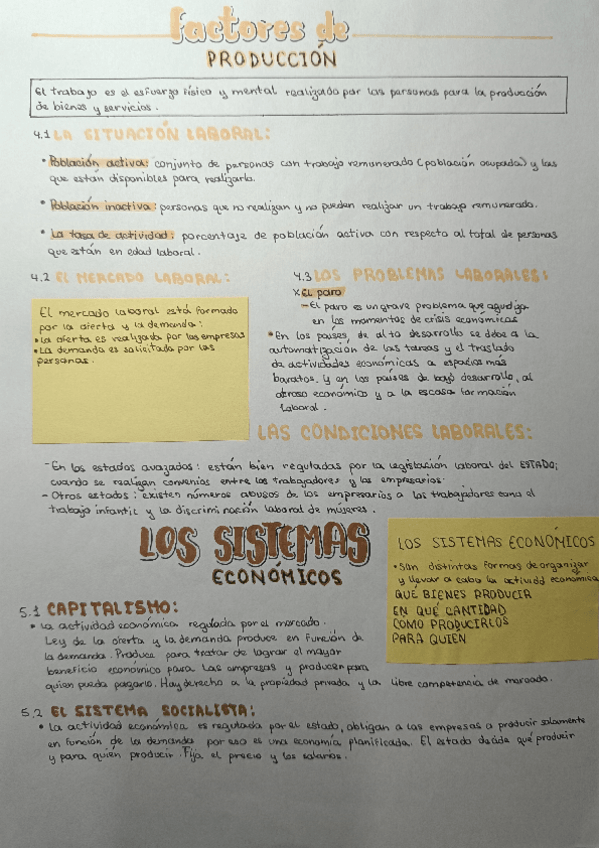 factores de
PRODUCCIÓN
El trabajo es el esfuerzo físico y mental realizado por las personas para la producción
de bienes y servicios.
4.1 LA SITUACIÓN LABORAL:
• Población activa: conjunto de personas con trabajo remunerado (población ocupada) y las
que están disponibles para realizarlo.
• Población inactiva: personas que no realizan y no puedan realizar un trabajo remunerado.
• La tasa de actividad: porcentaje de población activa con respecto al total de personas
que están en edad laboral.
4.2 EL MERCADO LABORAL:
El mercado laboral está formado
por la oferta y la demanda:
• La oferta es realizada por las empresas
• La demanda es solicitada por las
personas.
4.3 LOS PROBLEMAS LABORALES:
x El paro
- El paro es un grave problema que agudiza
en los momentos de crisis económicas
• En los países, de alto desarrollo se debe a la
automatización de las tareas y el traslado
de actividades económicas a espacios más
baratos. y en los países de bajo desarrollo, al
atraso económico y a la escasa formación
laboral.
LAS CONDICIONES LABORALES:
- En los estados avazados: están bien reguladas por la legislación laboral del ESTADO;
cuando se realizan convenios entre los trabajadores y los empresarios.
- Otros estados: existen números abusos de los empresarios a los trabajadores como el
trabajo infantil y la discriminación laboral de mujeres.
LOS SISTEMAS
ECONÓMICOS
LOS SISTEMAS ECONÓMICOS
• Son distintas formas de organizar
y llevar a cabo la activid económica
QUÉ BIENES PRODUCIR
EN QUÉ CANTIDAD
COMO PRODUCIRLOS
PARA QUIEN
5.1 CAPITALISMO:
• La actividad económica regulada por el mercado.
Ley de la oferta y la demanda produce en función de
la demanda. Produce para tratar de lograr el mayor
beneficio económico para las empresas y producen para
quien pueda pagarlo. Hay derecho a la propiedad privada y la libre competencia de mercado.
5.2 EL SISTEMA SOCIALISTA:
• La actividad económica es regulada por el estado, obligan a las empresas a producir solamente
en función de la demanda por eso es una economía planificada. El estado decide qué producir
y para quién producir. Fija el precio y los salarios.